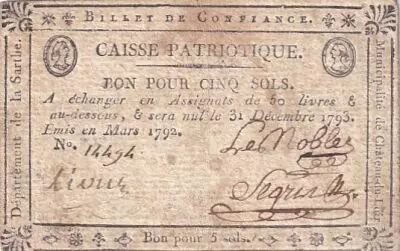 BILLET DE CONFIANCE.
CAISSE PATRIOTIQUE.
BON POUR CINQ SOLS.
A échanger en Assignats de 50 livres &
au-dessous, & sera nul le 31 Décembre 1793.
Émis en Mars 1792.
No. 14494
Le Noble
Bon pour 5 sols.
Département de la Sarthe.
Municipalité de